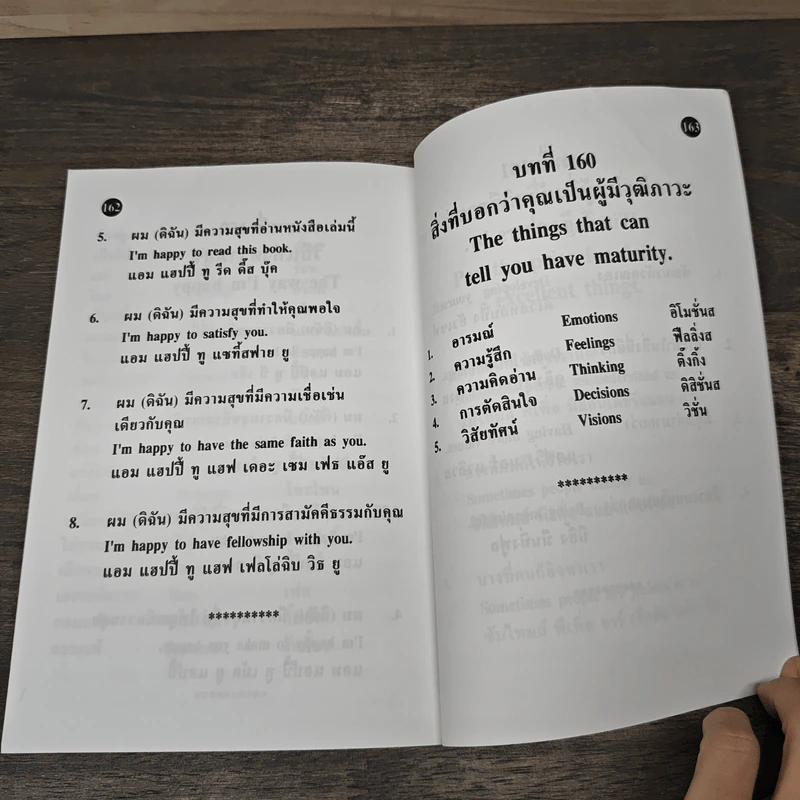 162
5. ผม (ดิฉัน) มีความสุขที่อ่านหนังสือเล่มนี้
I'm happy to read this book.
แอม แฮปปี้ ทู รีด ดี๊ส บุ๊ค
6. ผม (ดิฉัน) มีความสุขที่ทำให้คุณพอใจ
I'm happy to satisfy you.
แอม แฮปปี้ ทู แซทิ๊สฟาย ยู
7. ผม (ดิฉัน) มีความสุขที่มีความเชื่อเช่น
เดียวกับคุณ
I'm happy to have the same faith as you.
แอม แฮปปี้ ทู แฮฟ เดอะ เซม เฟธ แอ๊ส ยู
8. ผม (ดิฉัน) มีความสุขที่มีการสามัคคีธรรมกับคุณ
I'm happy to have fellowship with you.
แอม แฮปปี้ ทู แฮฟ เฟลโล่ฉิบ วิธ ยู
**********
163
บทที่ 160
สิ่งที่บอกว่าคุณเป็นผู้มีวุฒิภาวะ
The things that can
tell you have maturity.
1. อารมณ์ Emotions อิโมชั่นส
2. ความรู้สึก Feelings ฟีลลิ่งส
3. ความคิดอ่าน Thinking ติ๊งกิ้ง
4. การตัดสินใจ Decisions ดิสิชั่นส
5. วิสัยทัศน์ Visions วิชั่น
**********